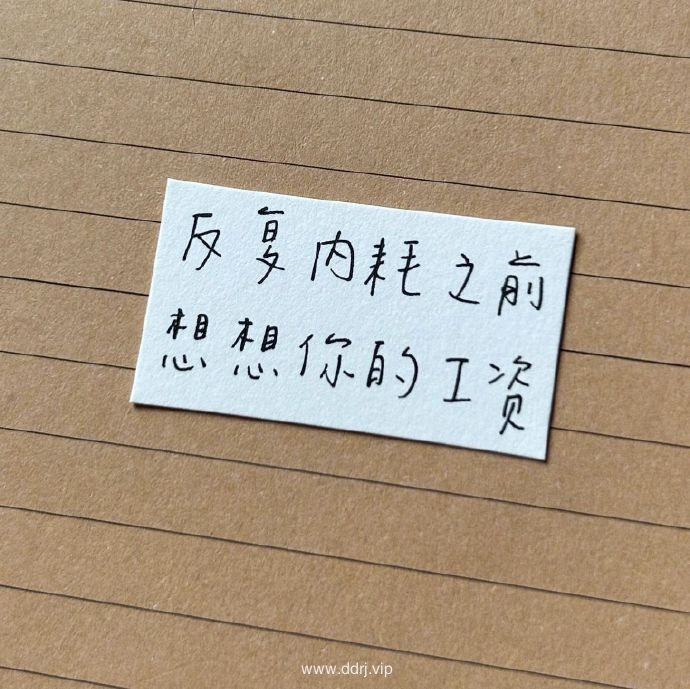 反复内耗之前
想想你的工资
www.ddrj.vip